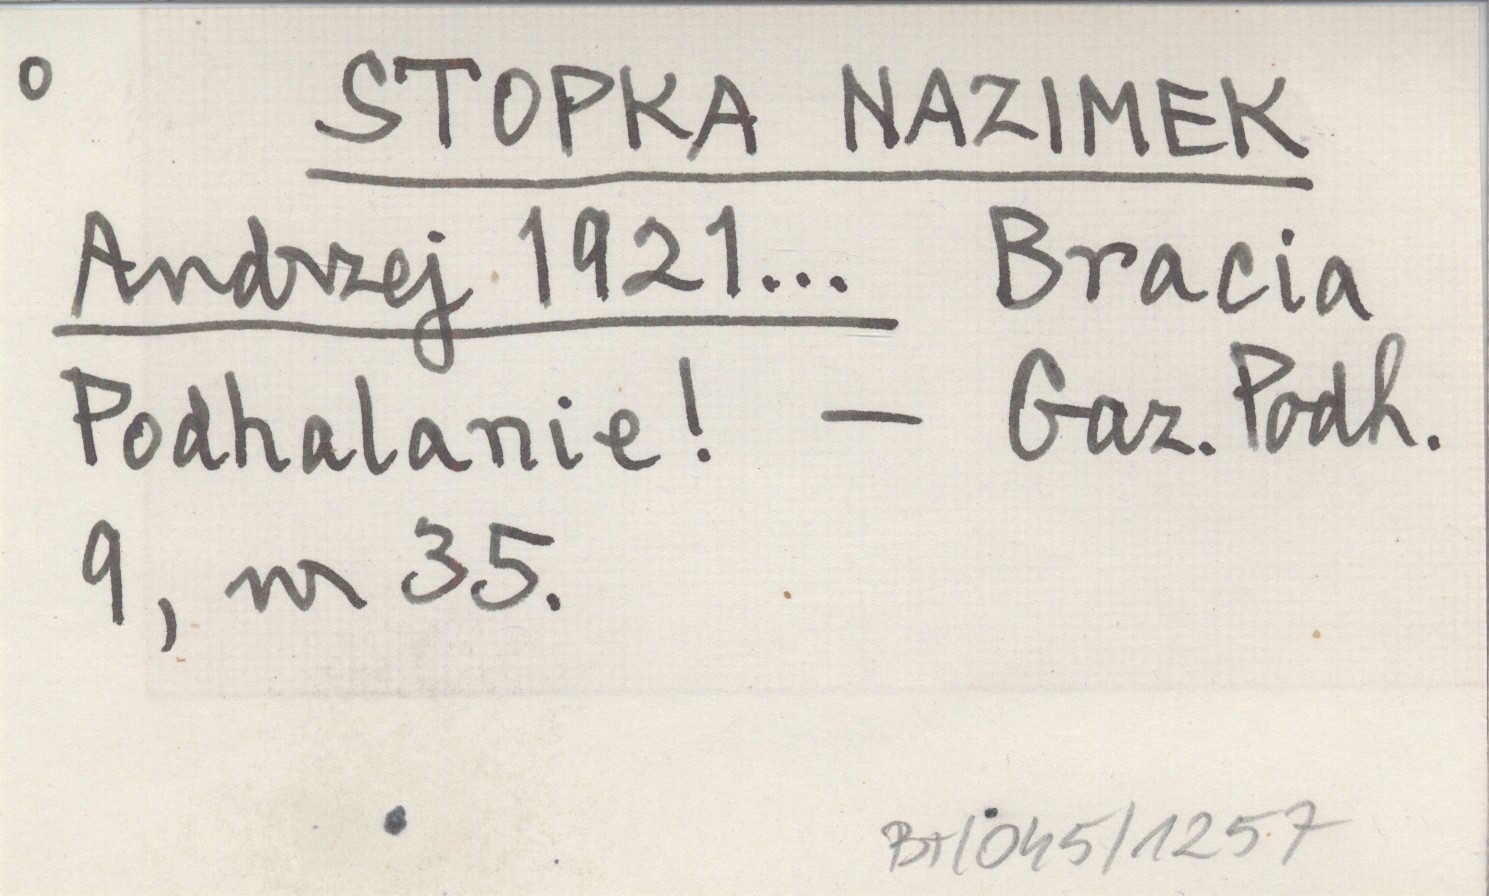 o STOPKA NAZIMEK
Andrzej 1921... Bracia
Podhalanie! — Gaz. Podh.
9, nr 35.
BT/045/1257